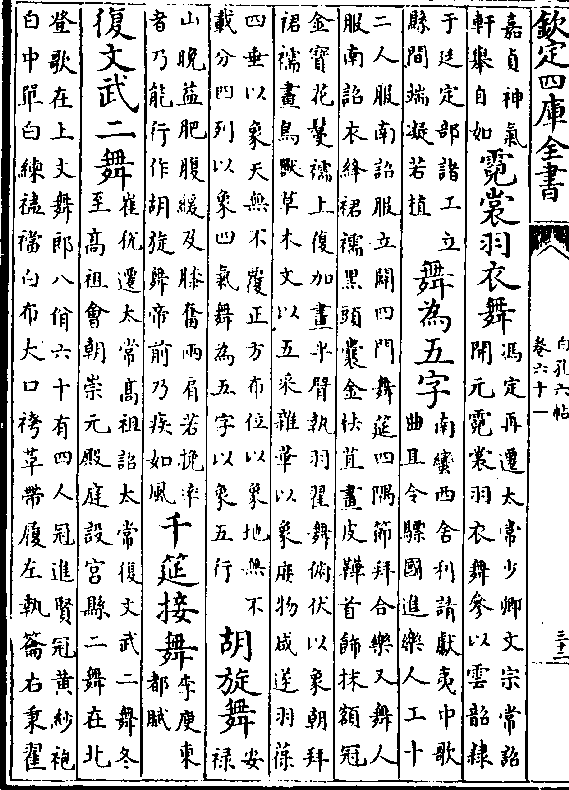 欽定四庫全書
白孔六帖
卷六十一
三十二
嘉貞神氣
軒舉自如
霓裳羽衣舞
馮定再遷太常少卿文宗常詔
開元霓裳羽衣舞參以雲韶隸
于廷定部諸工立
縣間端凝若植
舞為五字
南蠻西舍利請獻夷中歌
曲且令驃國進樂人工十
二人服南詔服立闢四門舞筵四隅節拜合樂又舞人
服南詔衣絳裙襦黑頭囊金佉苴畫皮鞾首飾抹額冠
金寶花鬘襦上復加畫半臂執羽翟舞俯伏以象朝拜
裙襦畫鳥獸草木文以五采雜華以象庶物咸遂羽葆
四垂以象天無不覆正方布位以象地無不
載分四列以象四氣舞為五字以象五行
胡旋舞
安
禄
山晚益肥腹緩及膝奮兩肩若挽牽
者乃能行作胡旋舞帝前乃疾如風
千筵接舞
李庾東
都賦
復文武二舞
崔梲遷太常高祖詔太常復文武二舞冬
至高祖會朝崇元殿庭設宮縣二舞在北
登歌在上文舞郎八佾六十有四人冠進賢冠黄紗袍
白中單白練襠白布大口袴革帶履左執籥右秉翟